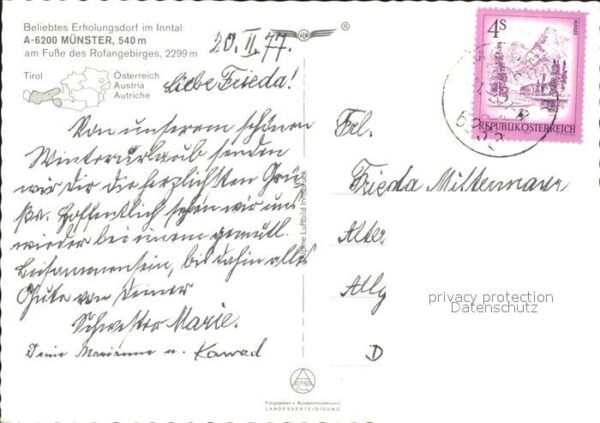 Beliebtes Erholungsdorf im Inntal
A-6200 MÜNSTER, 540 m
am Fuße des Rofangebirges, 2299 m
Tirol
Österreich
Austria
Autriche
20. II. 77
Liebe Frieda!
Von unserem schönen
Winterurlaub senden
wir dir die herzlichsten Grü-
ße. Hoffentlich sehen wir uns
wieder bei einem gemütl.
Beisammensein, bis dahin alles
Gute von Deiner
Schwester Marie.
Deine Marianne u. Konrad
Frl.
Frieda Mittermaier
Alter
Allg
D
4 S
REPUBLIK ÖSTERREICH
Luftbild Innsbruck
privacy protection
Datenschutz
ALPINE
Freigegeben v. Bundesministerium f.
LANDESVERTEIDIGUNG